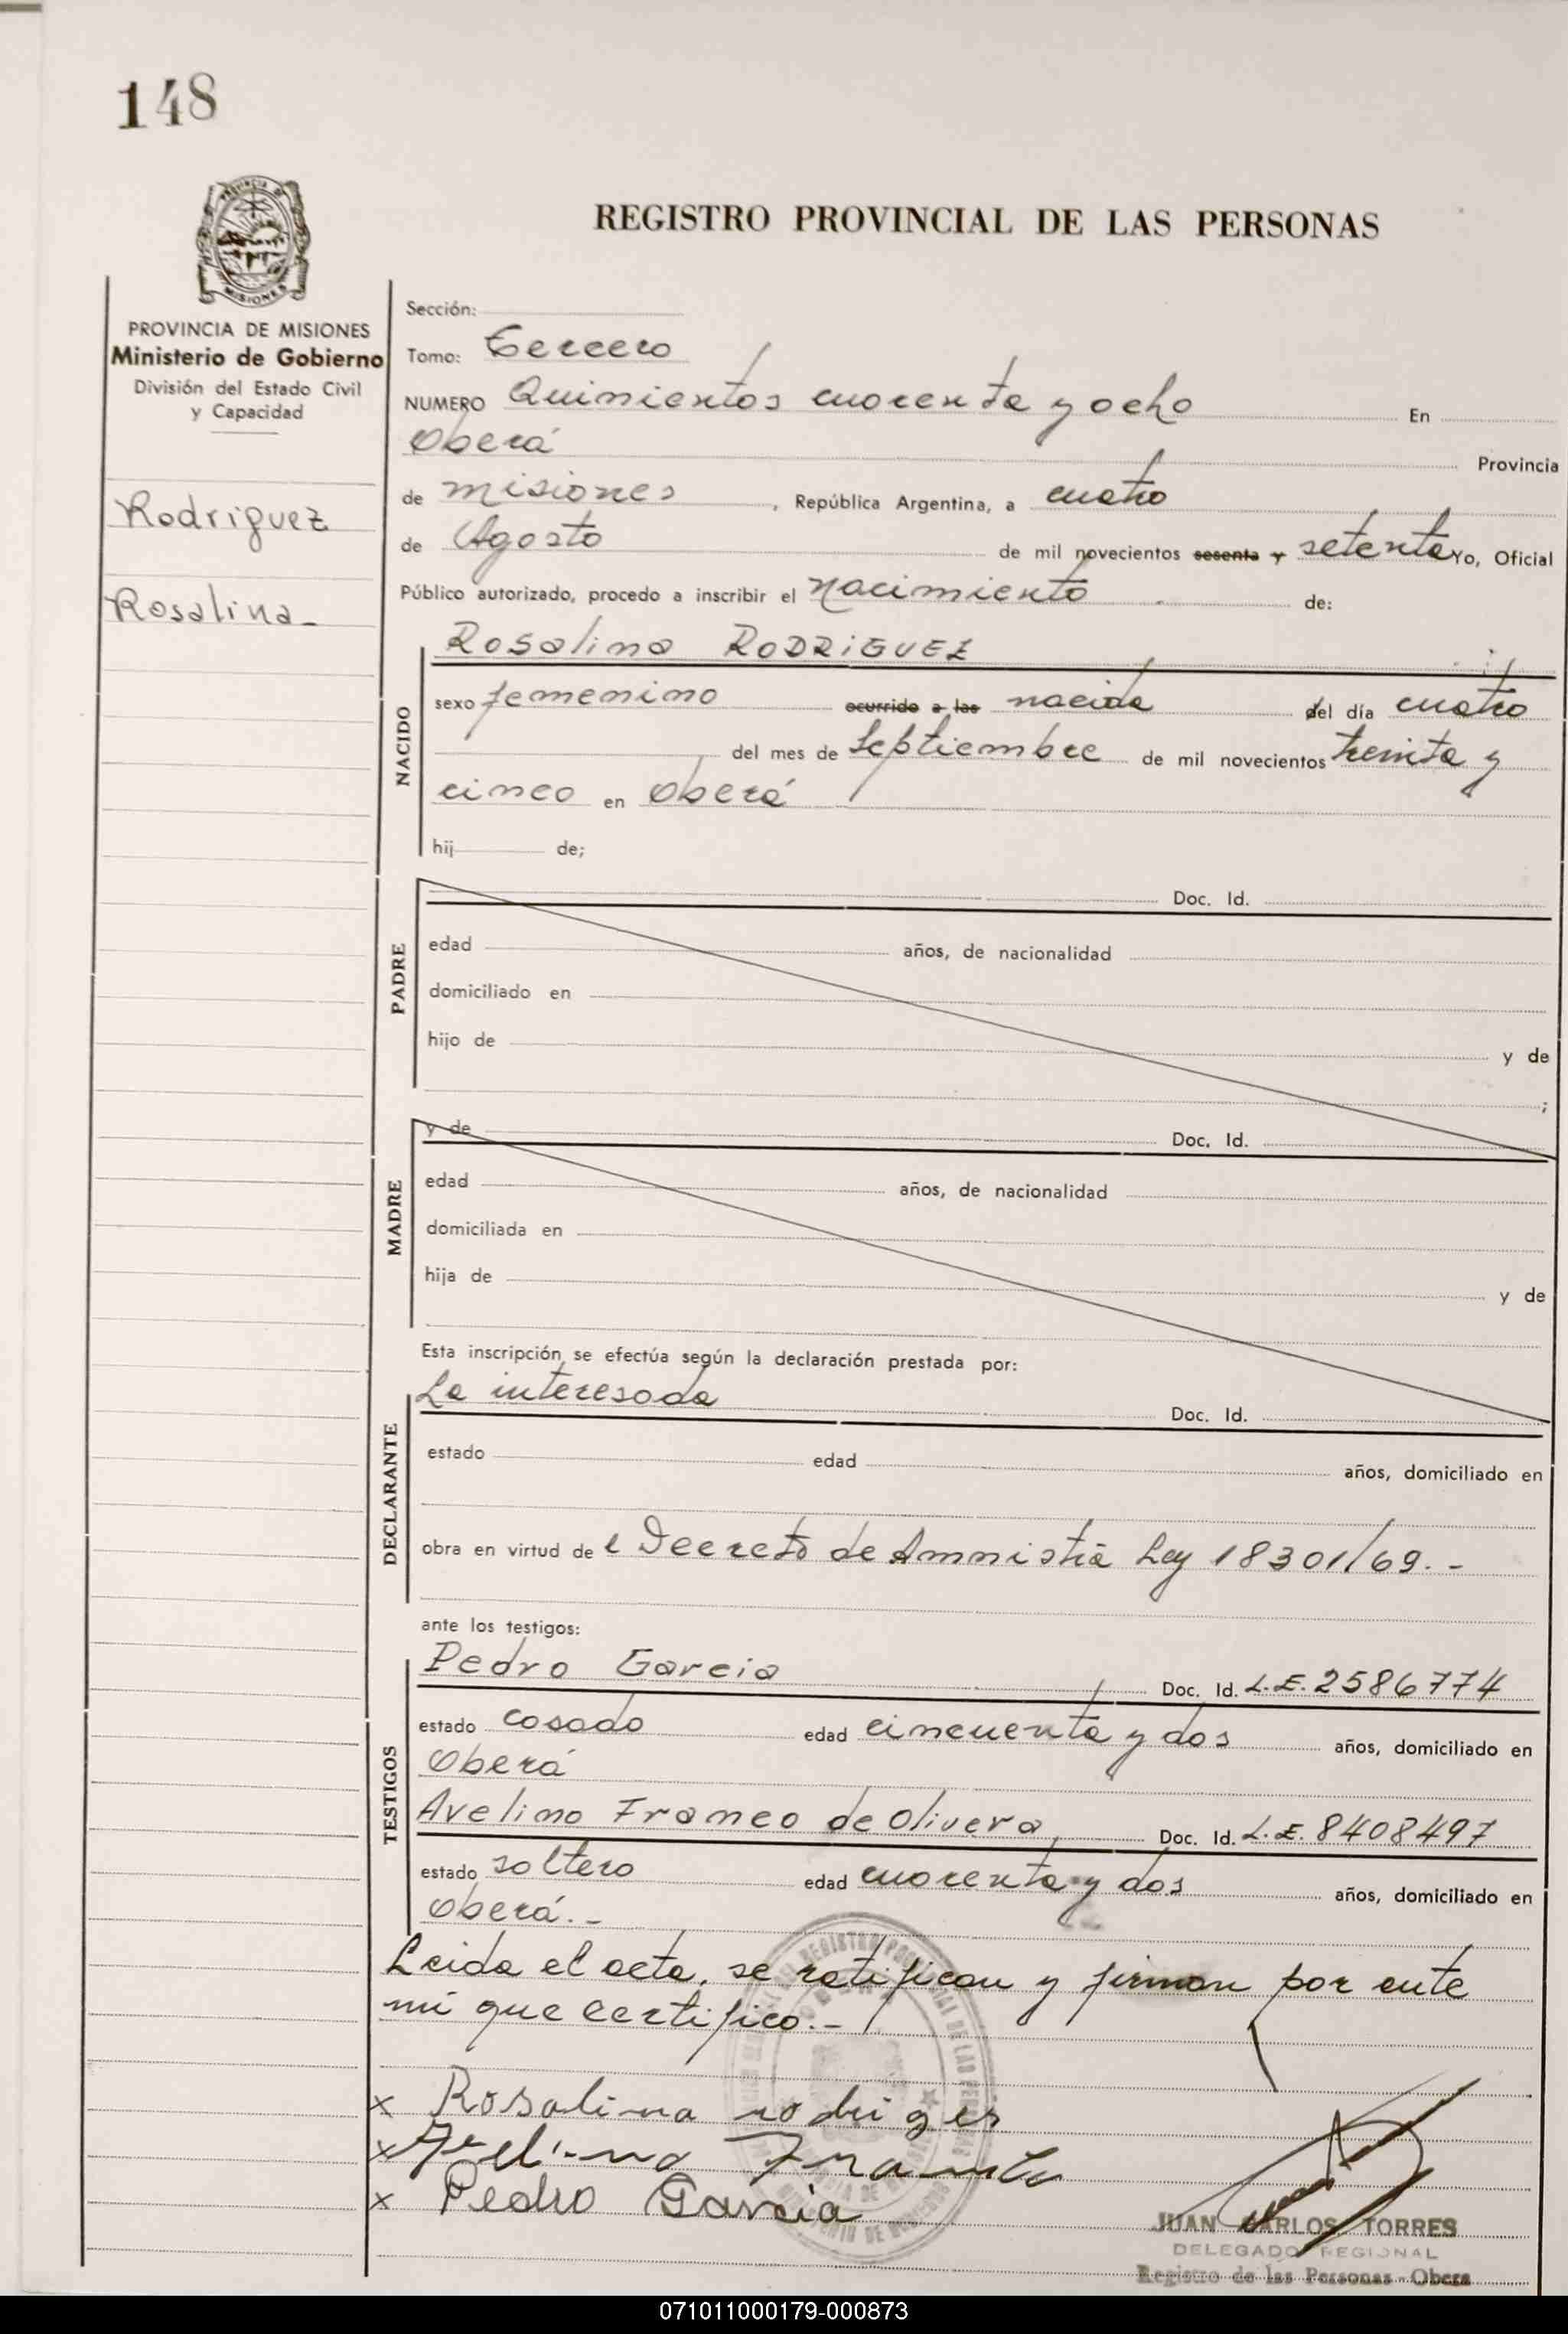 148
PROVINCIA DE MISIONES
Ministerio de Gobierno
División del Estado Civil
y Capacidad
Rodriguez
Rosalina-
REGISTRO PROVINCIAL DE LAS PERSONAS
Sección:
Tomo: Tercero
NUMERO Quinientos cuarenta y ocho En
Oberá Provincia
de misiones, República Argentina, a cuatro
de Agosto de mil novecientos sesenta y setenta Yo, Oficial
Público autorizado, procedo a inscribir el nacimiento de:
Rosalina RODRIGUEZ
NACIDO
sexo femenino ocurrido a las nacida del día cuatro
del mes de Septiembre de mil novecientos treinta y
cinco en Oberá
hij de;
PADRE
Doc. Id.
edad años, de nacionalidad
domiciliado en
hijo de y de
;
MADRE
y de Doc. Id.
edad años, de nacionalidad
domiciliada en
hija de y de
Esta inscripción se efectúa según la declaración prestada por:
DECLARANTE
La interesada Doc. Id.
estado edad años, domiciliado en
obra en virtud de l Decreto de Amnistía Ley 18301/69.-
ante los testigos:
TESTIGOS
Pedro Garcia Doc. Id. L.E. 2586774
estado casado edad cincuenta y dos años, domiciliado en
Oberá
Avelino Franco de Olivera Doc. Id. L.E. 8408497
estado soltero edad cuarenta y dos años, domiciliado en
Oberá.-
Leida el acta, se ratifican y firman por ente
mi que certifico.-
x Rosalina rodriges
x Avelino Franco
x Pedro Garcia
JUAN CARLOS TORRES
DELEGADO REGIONAL
Registro de las Personas - Obera
071011000179-000873